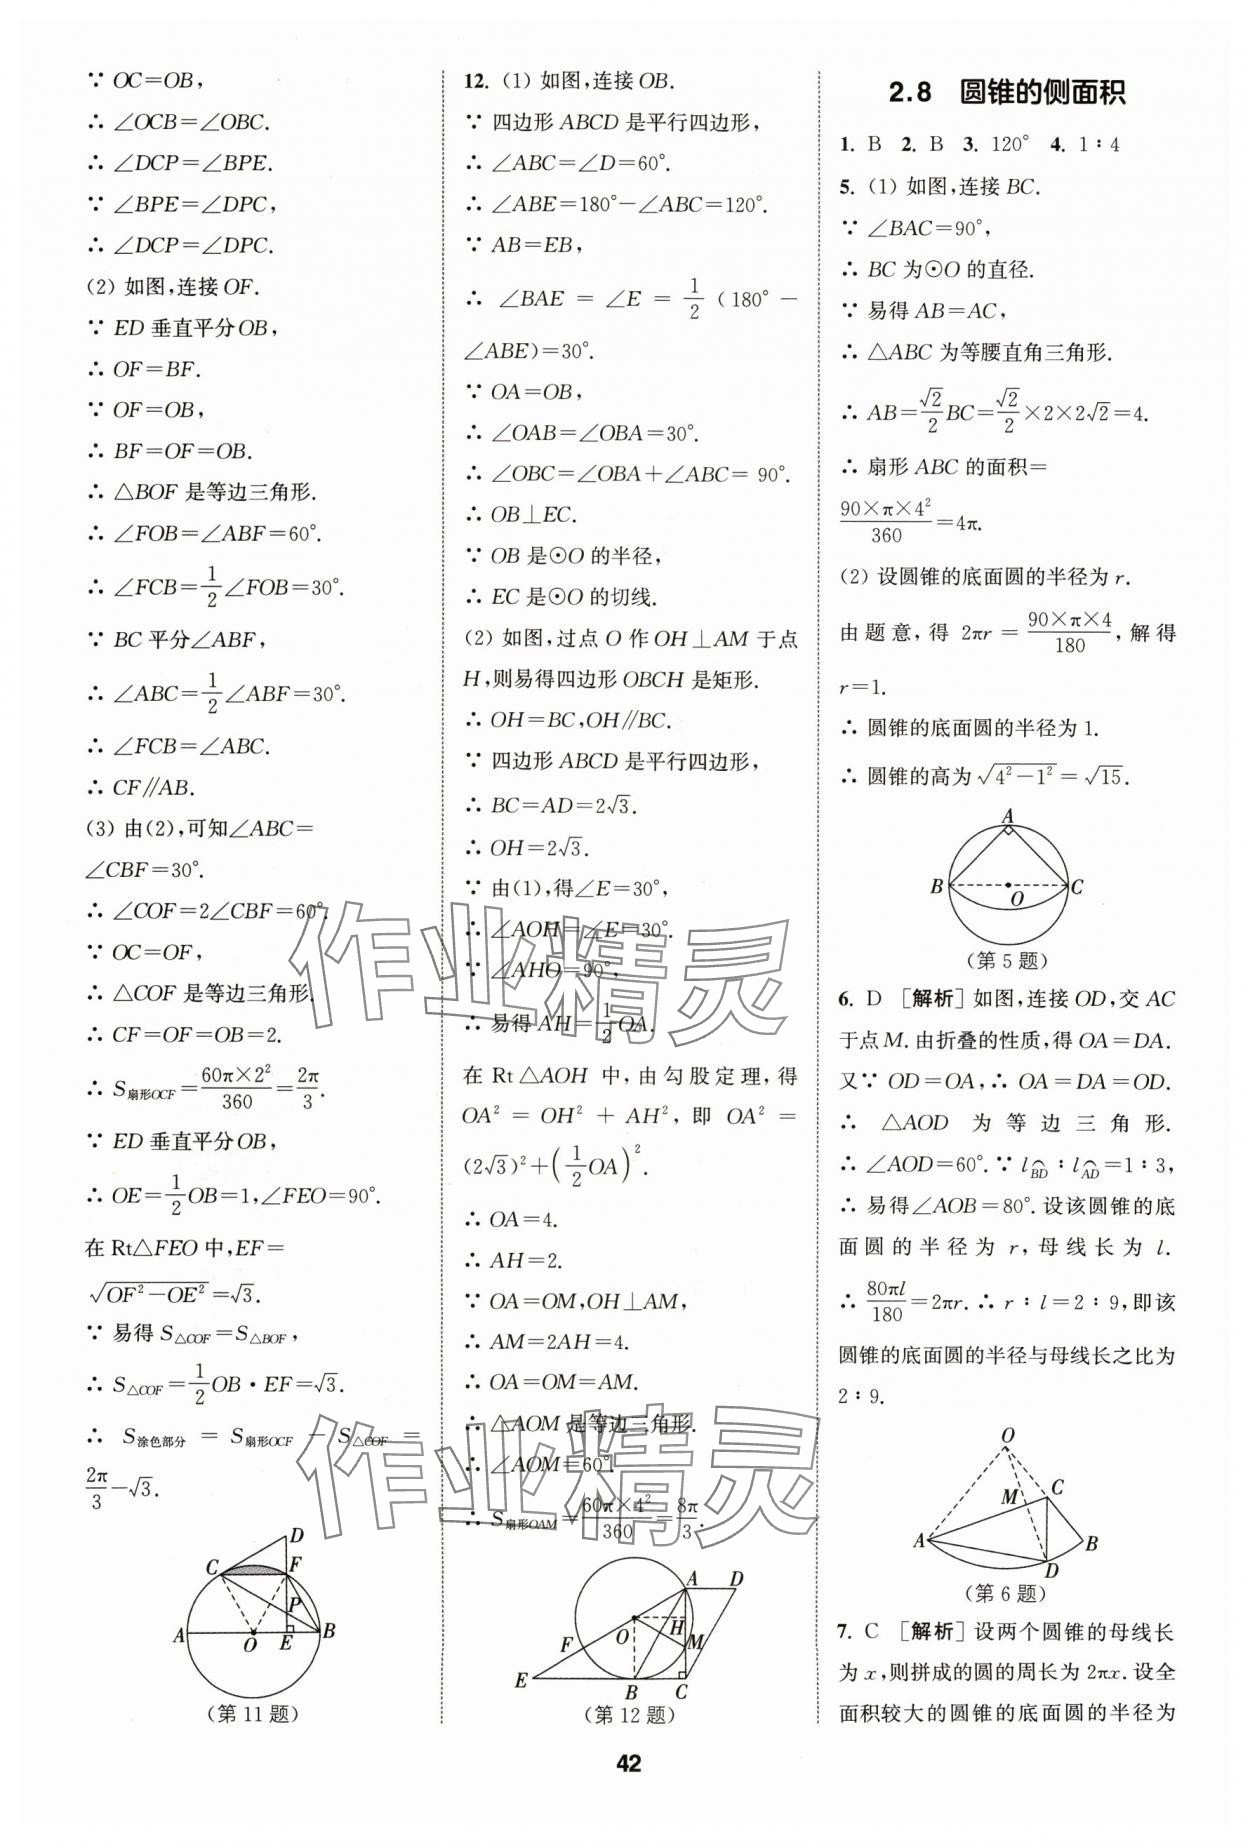 ∵ OC=OB,
∴ ∠OCB=∠OBC.
∴ ∠DCP=∠BPE.
∵ ∠BPE=∠DPC,
∴ ∠DCP=∠DPC.
(2) 如图,连接OF.
∵ ED 垂直平分OB,
∴ OF=BF.
∵ OF=OB,
∴ BF=OF=OB.
∴ △BOF 是等边三角形.
∴ ∠FOB=∠ABF=60°.
∴ ∠FCB=1/2∠FOB=30°.
∵ BC 平分∠ABF,
∴ ∠ABC=1/2∠ABF=30°.
∴ ∠FCB=∠ABC.
∴ CF∥AB.
(3) 由(2),可知∠ABC=
∠CBF=30°.
∴ ∠COF=2∠CBF=60°.
∵ OC=OF,
∴ △COF 是等边三角形.
∴ CF=OF=OB=2.
∴ S扇形OCF=60π×2²/360=2π/3.
∵ ED 垂直平分OB,
∴ OE=1/2OB=1,∠FEO=90°.
在 Rt△FEO 中,EF=
√(OF²−OE²)=√3.
∵ 易得 S△COF=S△BOF,
∴ S△COF=1/2OB·EF=√3.
∴ S涂色部分 = S扇形OCF − S△COF =
2π/3−√3.
D
C
F
P
A
O
E
B
(第11题)
12. (1) 如图,连接OB.
∵ 四边形ABCD 是平行四边形,
∴ ∠ABC=∠D=60°.
∴ ∠ABE=180°−∠ABC=120°.
∵ AB=EB,
∴ ∠BAE = ∠E = 1/2 (180° −
∠ABE)=30°.
∵ OA=OB,
∴ ∠OAB=∠OBA=30°.
∴ ∠OBC=∠OBA+∠ABC= 90°.
∴ OB⊥EC.
∵ OB 是⊙O 的半径,
∴ EC 是⊙O 的切线.
(2) 如图,过点O 作OH⊥AM 于点
H,则易得四边形OBCH 是矩形.
∴ OH=BC,OH∥BC.
∵ 四边形ABCD 是平行四边形,
∴ BC=AD=2√3.
∴ OH=2√3.
∵ 由(1),得∠E=30°,
∴ ∠AOH=∠E=30°.
∵ ∠AHO=90°,
∴ 易得 AH=1/2OA.
在 Rt△AOH 中,由勾股定理,得
OA² = OH² + AH²,即 OA² =
(2√3)²+(1/2OA)².
∴ OA=4.
∴ AH=2.
∵ OA=OM,OH⊥AM,
∴ AM=2AH=4.
∴ OA=OM=AM.
∴ △AOM 是等边三角形.
∴ ∠AOM=60°.
∴ S扇形OAM=60π×4²/360=8π/3.
A
D
O
H
F
M
E
B
C
(第12题)
2.8 圆锥的侧面积
1. B 2. B 3. 120° 4. 1∶4
5. (1) 如图,连接BC.
∵ ∠BAC=90°,
∴ BC 为⊙O 的直径.
∵ 易得 AB=AC,
∴ △ABC 为等腰直角三角形.
∴ AB=√2/2BC=√2/2×2×2√2=4.
∴ 扇形 ABC 的面积=
90×π×4²/360=4π.
(2) 设圆锥的底面圆的半径为r.
由题意,得 2πr = 90×π×4/180,解得
r=1.
∴ 圆锥的底面圆的半径为1.
∴ 圆锥的高为√(4²−1²)=√15.
A
B
O
C
(第5题)
6. D [解析]如图,连接OD,交AC
于点M.由折叠的性质,得OA=DA.
又∵ OD=OA,∴ OA=DA=OD.
∴ △AOD 为等边三角形.
∴ ∠AOD=60°.∵ l⌒BD∶l⌒AD=1∶3,
∴ 易得∠AOB=80°.设该圆锥的底
面圆的半径为r,母线长为l.
∴ 80πl/180=2πr.∴ r∶l=2∶9,即该
圆锥的底面圆的半径与母线长之比为
2∶9.
O
M
C
A
B
D
(第6题)
7. C [解析]设两个圆锥的母线长
为x,则拼成的圆的周长为2πx.设全
面积较大的圆锥的底面圆的半径为
42
作业精灵
作业精灵